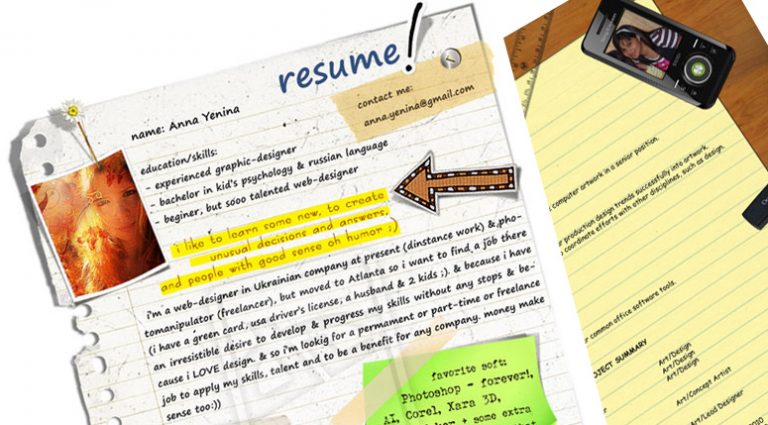 resume!
contact me:
anna.yenina@gmail.com
name: Anna Yenina
education/skills:
- experienced graphic-designer
- bachelor in kid's psychology & russian language
- beginer, but sooo talented web-designer
i like to learn some new, to create
unusual decisions and answers,
and people with good sense oh humor ;)
i'm a web-designer in Ukrainian company at present (dinstance work) & pho-
tomanipulator (freelancer), but moved to Atlanta so i want to find a job there
(i have a green card, usa driver's license, a husband & 2 kids ;). & because i have
an irresistible desire to develop & progress my skills without any stops & be-
cause i LOVE design. & so i'm lookig for a permament or part-time or freelance
job to apply my skills, talent and to be a benefit for any company. money make
sense too:))
favorite soft:
Photoshop - forever!,
AI, Corel, Xara 3D,
+ some extra
computer artwork in a senior position.
production design trends successfully into artwork.
coordinate efforts with other disciplines, such as design,
common office software tools.
SUMMARY
Art/Design
Art/Design
Art/Design
Art/Concept Artist
Art/Lead Designer